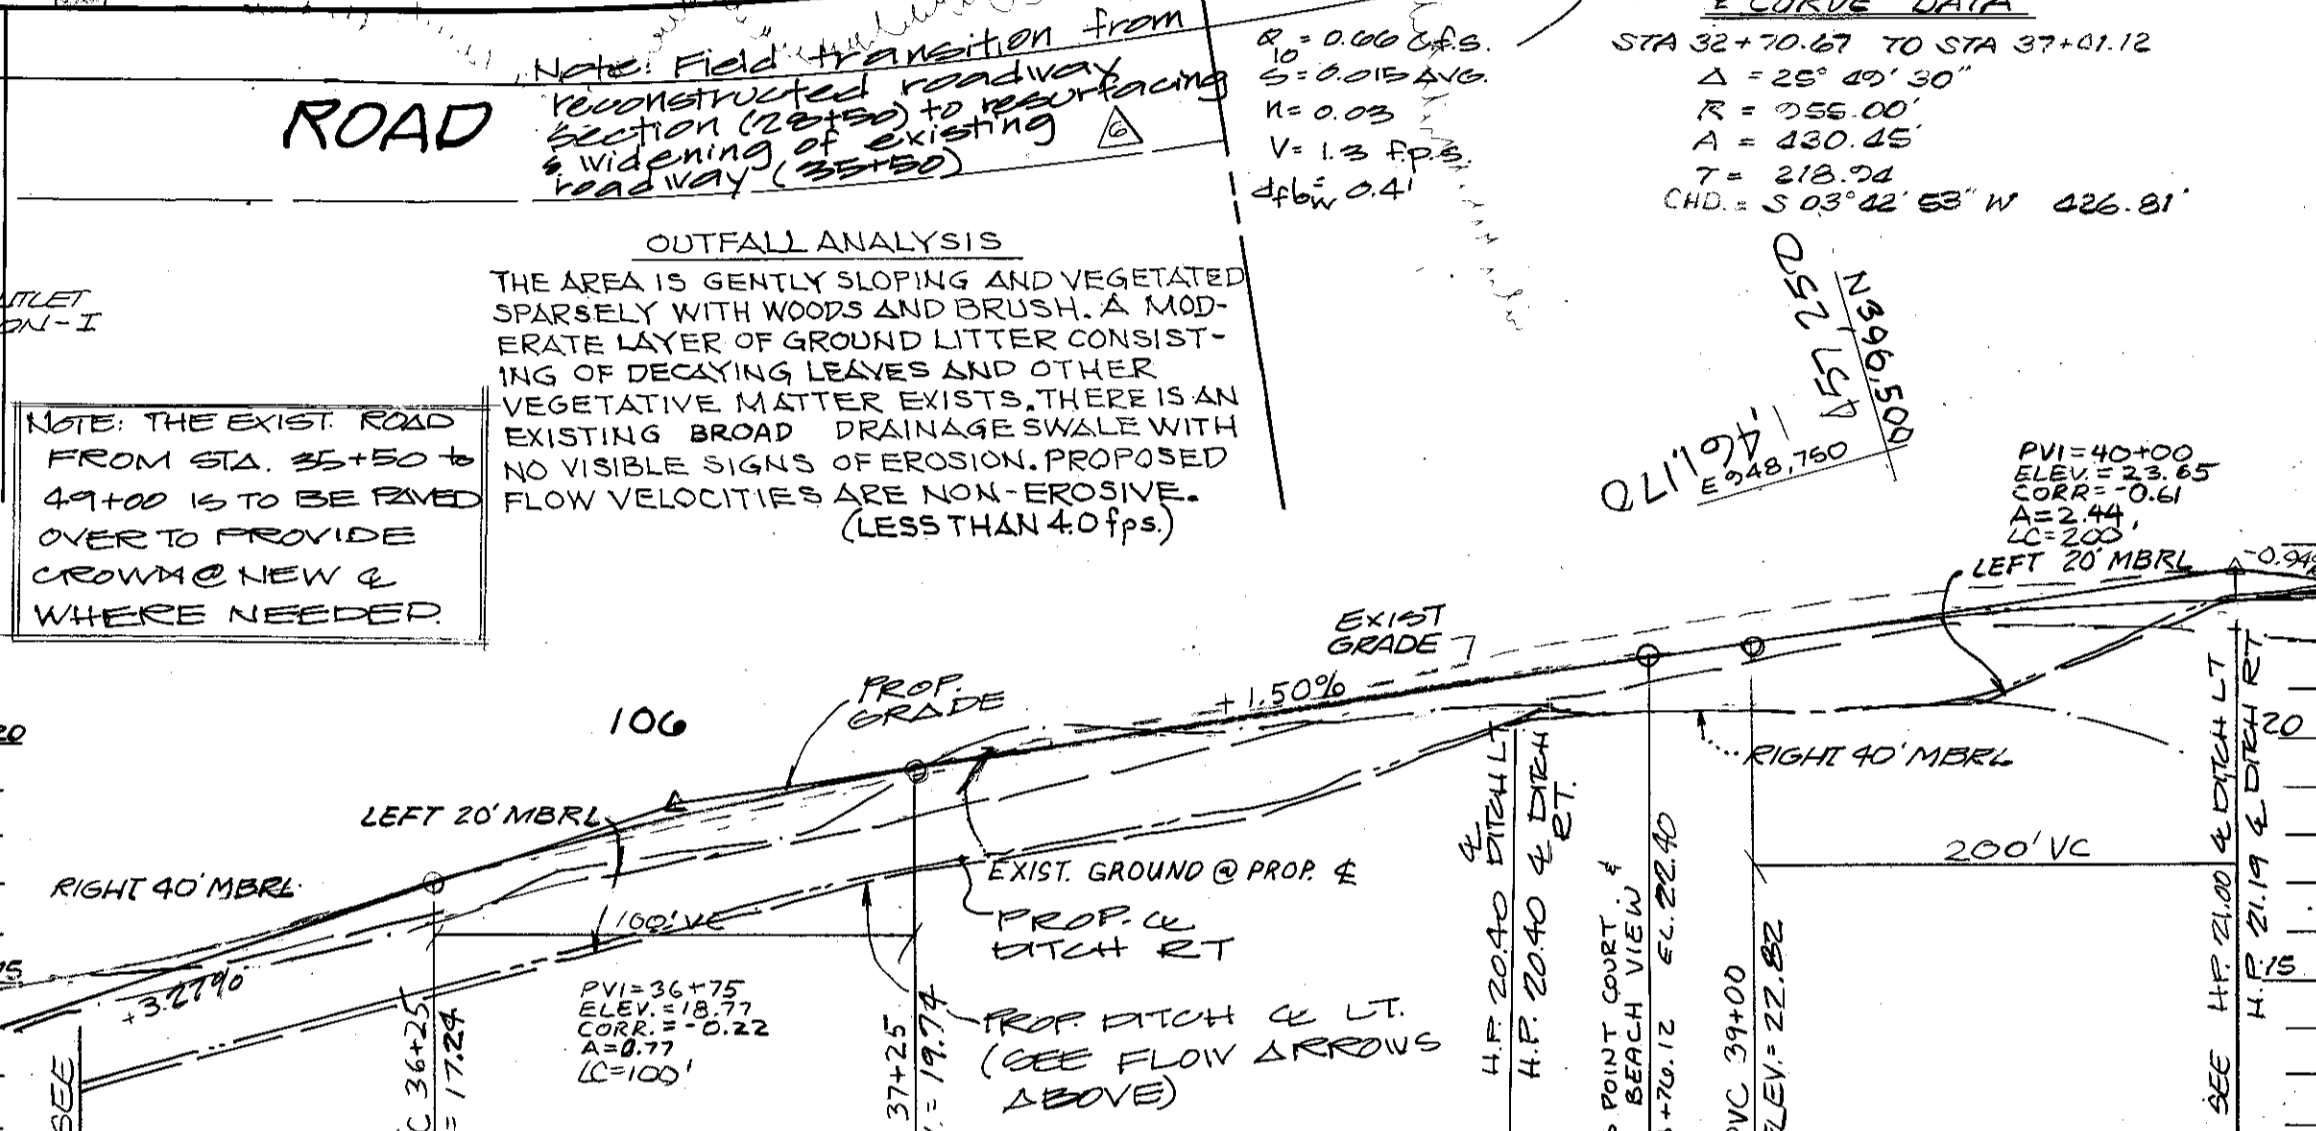 ROAD
Note: Field transition from
reconstructed roadway
section (28+50) to resurfacing
& widening of existing
roadway (35+50)
6
Q10 = 0.66 c.f.s.
S = 0.015 AVG.
n = 0.03
V = 1.3 f.p.s.
dfbw = 0.4'
℄ CURVE DATA
STA 32+70.67 TO STA 37+01.12
Δ = 25° 49' 30"
R = 955.00'
A = 430.45'
T = 218.94
CHD. = S 03° 42' 53" W 426.81'
OUTFALL ANALYSIS
THE AREA IS GENTLY SLOPING AND VEGETATED
SPARSELY WITH WOODS AND BRUSH. A MOD-
ERATE LAYER OF GROUND LITTER CONSIST-
ING OF DECAYING LEAVES AND OTHER
VEGETATIVE MATTER EXISTS. THERE IS AN
EXISTING BROAD DRAINAGE SWALE WITH
NO VISIBLE SIGNS OF EROSION. PROPOSED
FLOW VELOCITIES ARE NON-EROSIVE.
(LESS THAN 4.0 fps.)
NOTE: THE EXIST. ROAD
FROM STA. 35+50 to
49+00 IS TO BE PAVED
OVER TO PROVIDE
CROWN @ NEW ℄
WHERE NEEDED.
N396,500
E948,750
PVI=40+00
ELEV.=23.65
CORR=-0.61
A=2.44
LC=200'
LEFT 20' MBRL
EXIST
GRADE
+1.50%
PROP.
GRADE
106
20
LEFT 20' MBRL
RIGHT 40' MBRL
+3.27%
100' VC
PVI=36+75
ELEV.=18.77
CORR.=-0.22
A=0.77
LC=100'
36+25
= 17.24
37+25
= 19.74
EXIST. GROUND @ PROP. ℄
PROP. ℄
DITCH RT
PROP. DITCH ℄ LT.
(SEE FLOW ARROWS
ABOVE)
H.P. 20.40 ℄ DITCH LT
H.P. 20.40 ℄ DITCH RT.
POINT COURT &
BEACH VIEW
+76.12 EL. 22.40
PVC 39+00
ELEV.= 22.82
RIGHT 40' MBRL
200' VC
SEE H.P. 21.00 ℄ DITCH LT
H.P. 21.19 ℄ DITCH RT.
20
15
SEE